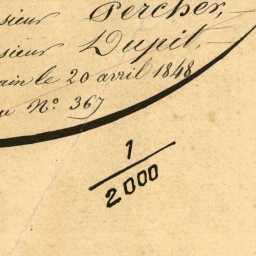 sieur Percher,
sieur Dupit,
ain le 20 avril 1848
Nº 367
1
2000